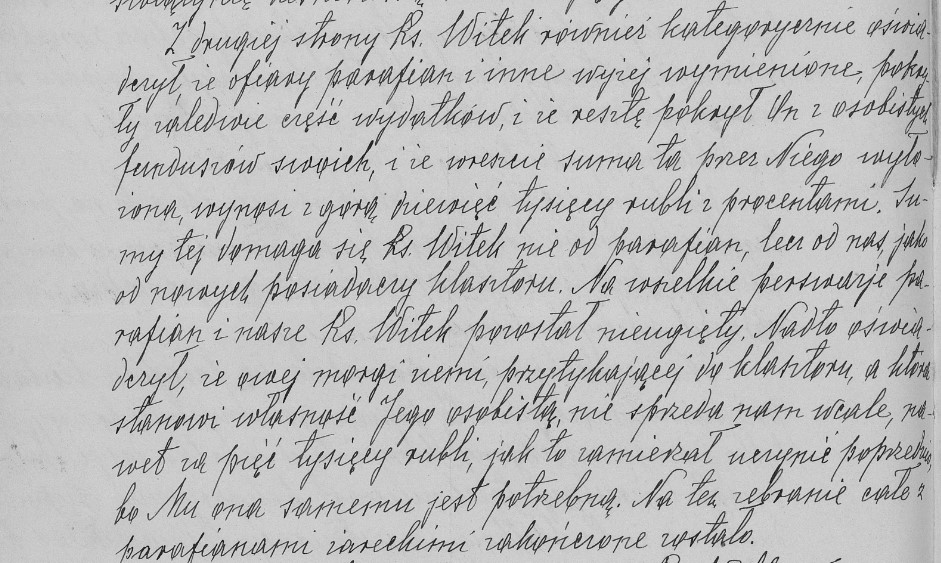 Z drugiej strony Ks. Witek również kategorycznie oświa-
dczył, że ofiary parafian i inne wyżej wymienione, pokry-
ły zaledwie część wydatków, i że resztę pokrył On z osobistych
funduszów swoich, i że wreszcie suma ta przez Niego wyło-
żona, wynosi z górą dziewięć tysięcy rubli z procentami. Su-
my tej domaga się Ks. Witek nie od parafian, lecz od nas, jako
od nowych posiadaczy klasztoru. Na wszelkie perswazje pa-
rafian i nasze Ks. Witek pozostał nieugięty. Nadto oświa-
dczył, że owej morgi ziemi, przytykającej do klasztoru, a która
stanowi własność Jego osobistą, nie sprzeda nam wcale, na-
wet za pięć tysięcy rubli, jak to zamierzał uczynić poprzednio,
bo Mu ona samemu jest potrzebną. Na tem zebranie całe z
parafianami żareckimi zakończone zostało.